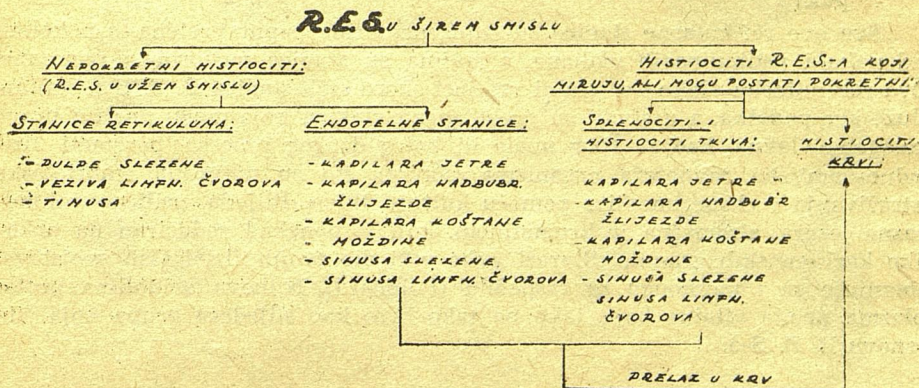 R.E.S. U ŠIREM SMISLU
NEPOKRETNI HISTIOCITI:
(R.E.S. U UŽEM SMISLU)
HISTIOCITI R.E.S.-A KOJI
MIRUJU, ALI MOGU POSTATI POKRETNI:
STANICE RETIKULUMA:
- PULPE SLEZENE
- VEZIVA LIMFN. ČVOROVA
- TIMUSA
ENDOTELNE STANICE:
- KAPILARA JETRE
- KAPILARA NADBUBR.
ŽLIJEZDE
- KAPILARA KOŠTANE
- MOŽDINE
- SINUSA SLEZENE
- SINUSA LIMFN. ČVOROVA
SPLENOCITI - I
HISTIOCITI TKIVA:
KAPILARA JETRE -
- KAPILARA NADBUBR
ŽLIJEZDE
- KAPILARA KOŠTANE
MOŽDINE
- SINUSA SLEZENE
SINUSA LIMFN.
ČVOROVA
HISTIOCITI
KRVI:
PRELAZ U KRV